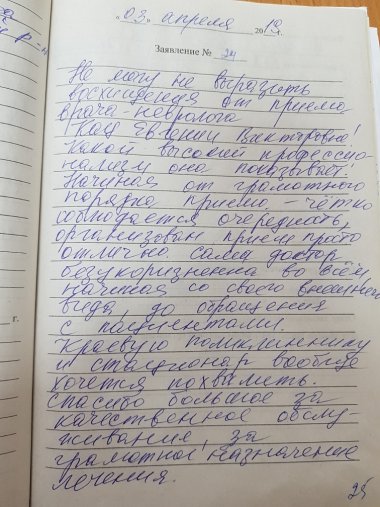 "03" апреля 2019г.
Заявление № 24
Не могу не выразить
восхищения от приема
врача-невролога
Кац Евгении Викторовна!
Какой высокий профессио-
нализм она показывает!
Начиная от грамотного
порядка приема - чётко
соблюдается очередность,
организован прием просто
отлично сама доктор
безукоризненна во всём,
начиная со своего внешнего
вида, до обращения
с пациентами.
Краевую поликлинику
и стационар вообще
хочется похвалить.
Спасибо большое за
качественное обслу-
живание, за
грамотное назначение
лечения.
25
г.